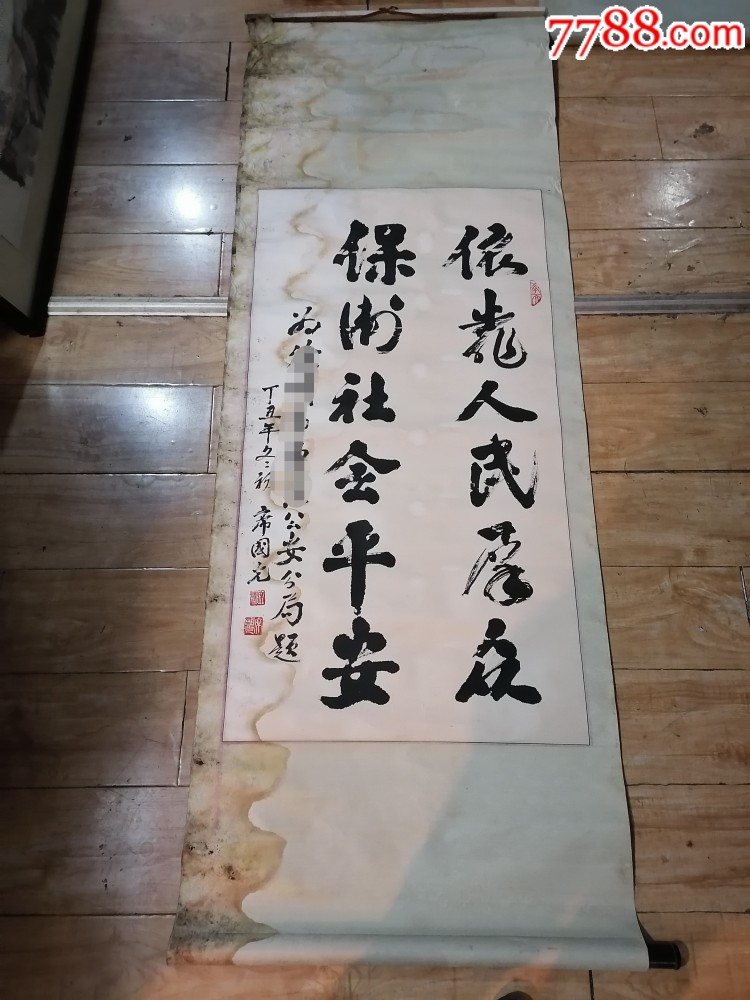 7788.com
依靠人民群众
保衛社会平安
为徐公安分局题
丁丑年冬之初 席國光